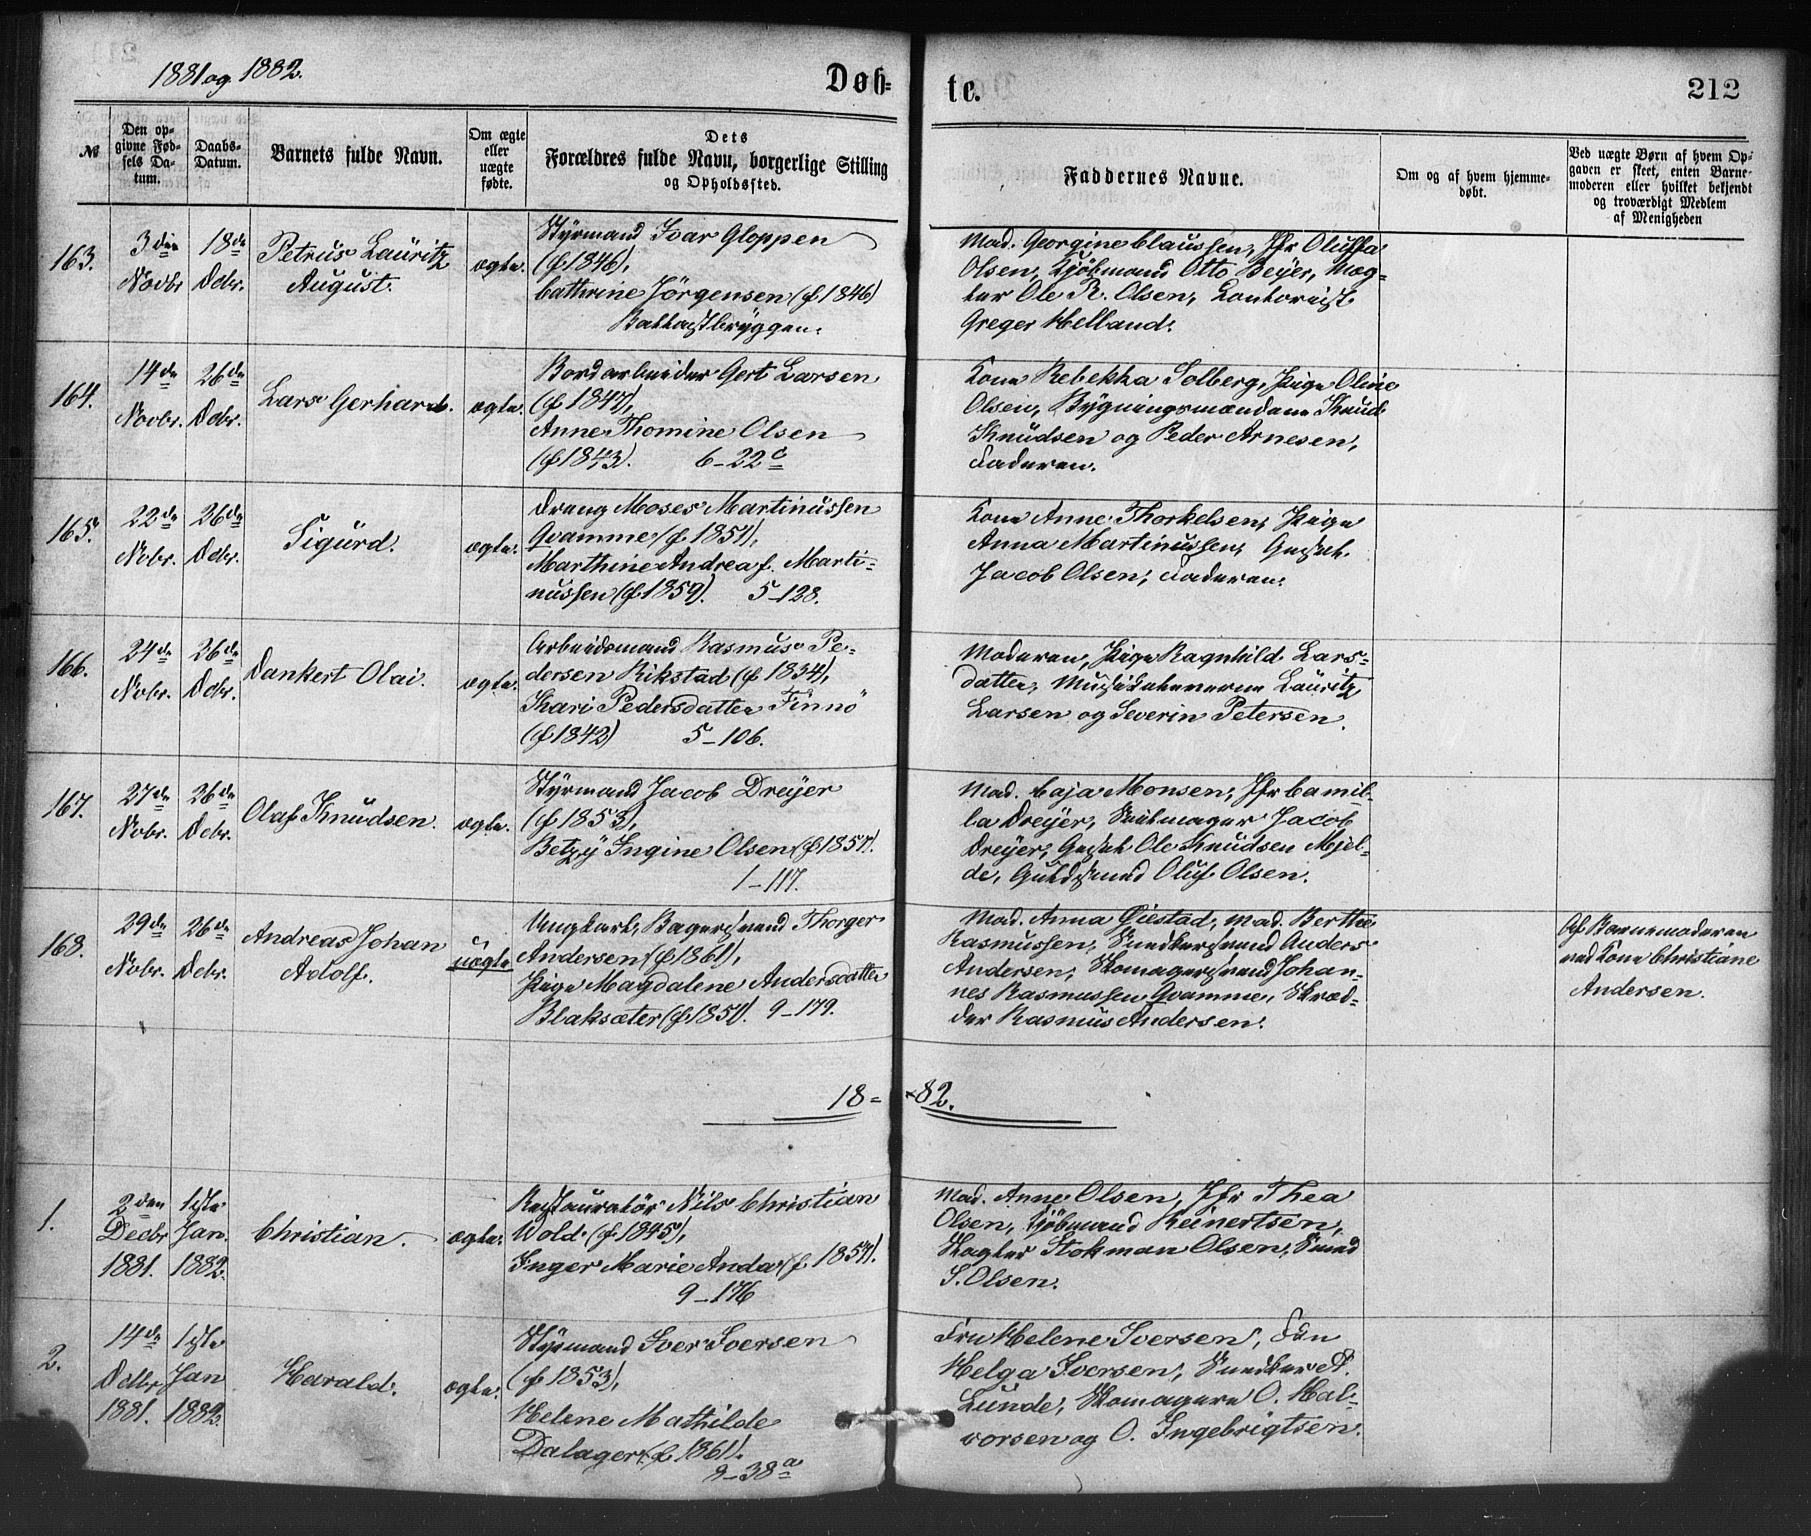 1881 og 1882.
Døb-
te.
212
№
Den op-
givne Fød-
sels Da-
tum.
Daabs-
Datum.
Barnets fulde Navn.
Om ægte
eller
uægte
fødte.
Dets
Forældres fulde Navn, borgerlige Stilling
og Opholdssted.
Faddernes Navne.
Om og af hvem hjemme-
døbt.
Ved uægte Børn af hvem Op-
gaven er skeet, enten Barne-
moderen eller hvilket bekjendt
og troværdigt Medlem
af Menigheden
163.
3die
Novbr
18de
Dcbr.
Petrus Lauritz
August.
ægte.
Styrmand Ivar Gloppen
(f 1846),
Cathrine Jörgensen (f. 1846)
Ballastbryggen.
Mad. Georgine Claussen, Jfr Oluffa
Olsen, Kjøbmand Otto Beyer, Mæg-
ler Ole R. Olsen, Contorist
Greger Helland.
164.
14de
Novbr.
26de
Dcbr.
Lars Gerhard.
ægte.
Bordarbeider Gert Larsen
(f 1847),
Anne Thomine Olsen
(f 1843). 6-22c
Kone Rebekka Solberg, Pige Oline
Olsen, Bygningsmændene Knud
Knudsen og Peder Arnesen,
Faderen.
165.
22de
Nobr.
26de
Dcbr.
Sigurd.
ægte.
Dreng Moses Martinussen
Qvamme (f. 1857),
Marthine Andrea f. Marti-
nussen (f 1859). 5-128.
Kone Anne Thorkelsen, Pige
Anna Martinussen, Gesel.
Jacob Olsen, Faderen.
166.
24de
Nobr.
26de
Dcbr.
Dankert Olai.
ægte.
Arbeidsmand Rasmus Pe-
dersen Rikstad (f 1834),
Kari Pedersdatter Finnö
(f 1842) 5-106.
Moderen, Pige Ragnhild Lars-
datter, Musikeleverne Lauritz
Larsen og Severin Petersen.
167.
27de
Nobr.
26de
Dcbr.
Olaf Knudsen.
ægte.
Styrmand Jacob Dreyer
(f 1853),
Betzy Ingine Olsen (f 1857).
1-117.
Mad. Caja Monsen, Jfr Camil-
la Dreyer, Seilmager Jacob
Dreyer, Ole Knudsen Mjel-
de, Guldsmed Oluf Olsen.
168.
29de
Nobr.
26de
Dcbr.
Andreas Johan
Adolf.
uægte
Ungkarl, Bagersvend Thorger
Andersen (f 1861),
Pige Magdalene Andersdatter
Blaksæter (f. 1857). 9-179.
Mad. Anna Øiestad, Mad. Berthe
Rasmussen, Snedkersvend Anders
Andersen, Skomagersvend Johan-
nes Rasmussen Qvamme, Skræd-
der Rasmus Andersen.
Af Barnemoderen
ved Kone Christiane
Andersen.
18-
-82.
1.
2den
Decbr
1881.
1ste
Jan.
1882.
Christian.
ægte.
Restauratör Nils Christian
Wold (f. 1845),
Inger Marie Anda (f. 1857).
9-176
Mad. Anne Olsen, Jfr Thea
Olsen, Kjøbmand Reinertsen,
Stokman Olsen, Smed
S. Olsen.
2.
14de
Dcbr
1881.
1ste
Jan
1882.
Harald.
ægte.
Styrmand Iver Iversen
(f 1853),
Helene Mathilde
Dalager (f. 1861).
9-38a
Fru Helene Iversen, Frkn
Helga Iversen, Snedker A.
Lunde, Skomagere O. Hal-
vorsen og O. Ingebrigtsen.